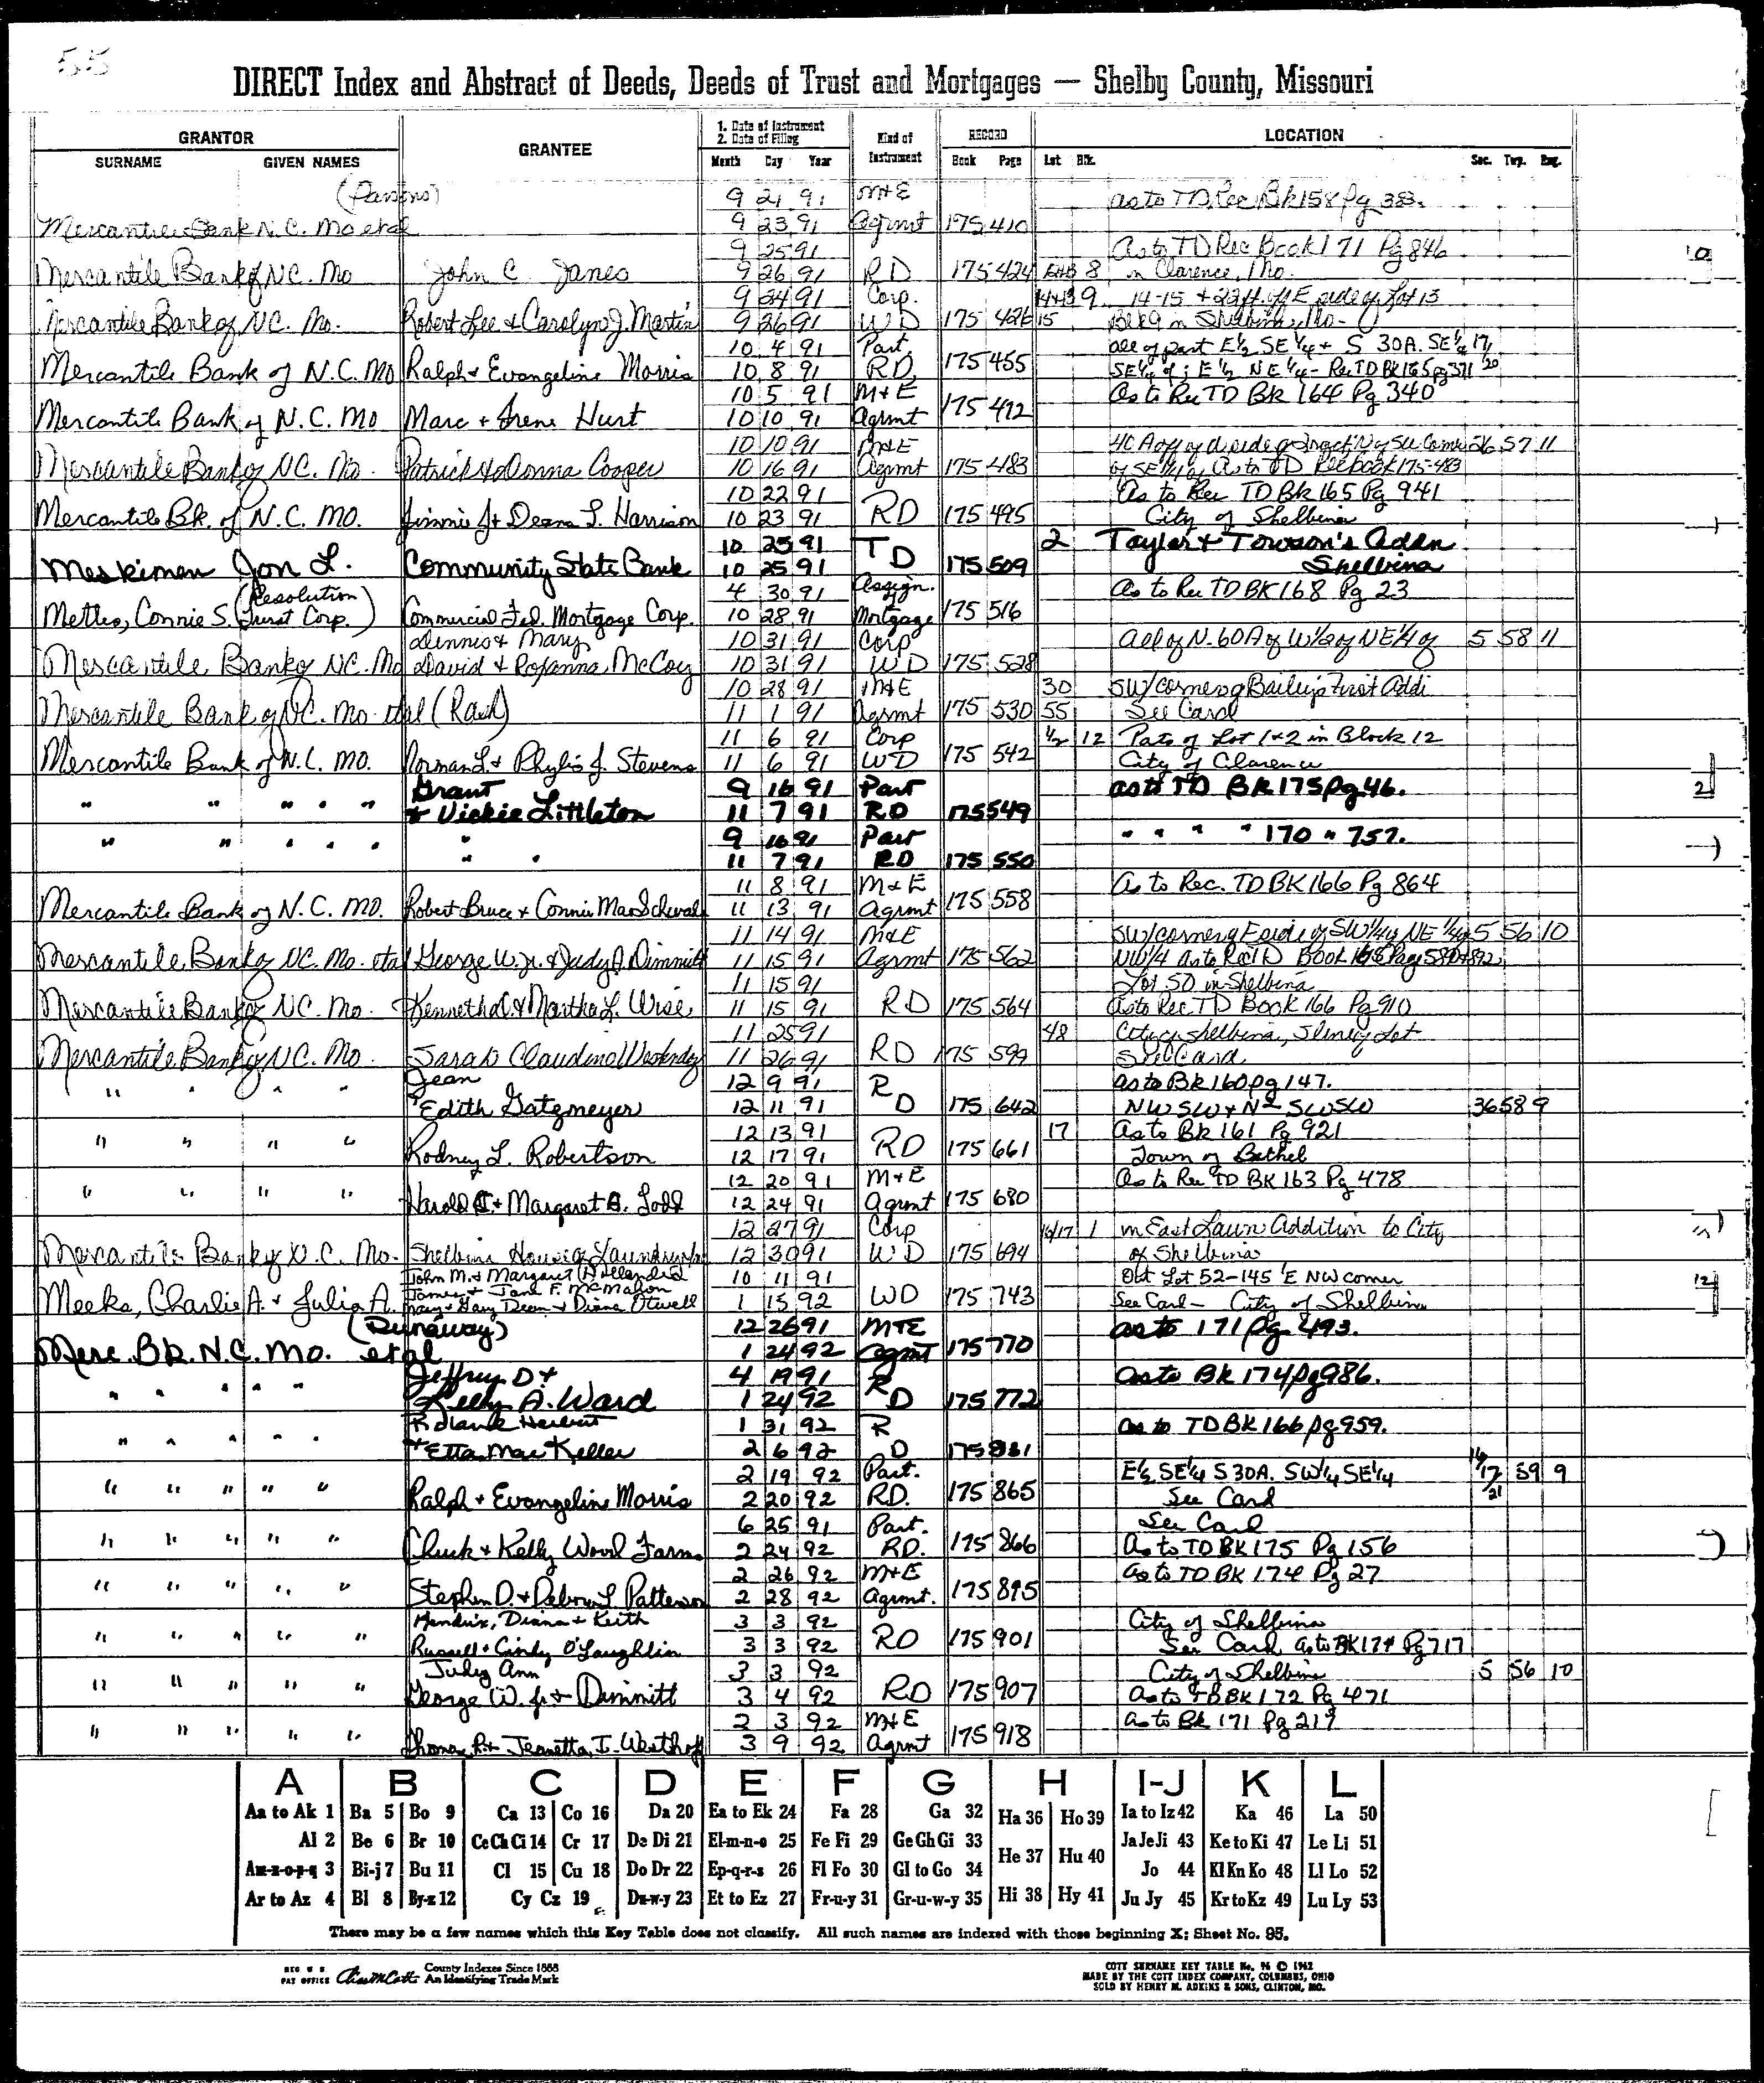 55
DIRECT Index and Abstract of Deeds, Deeds of Trust and Mortgages — Shelby County, Missouri
GRANTOR
SURNAME GIVEN NAMES
GRANTEE
1. Date of Instrument
2. Date of Filing
Month Day Year
Kind of Instrument
RECORD
Book Page
LOCATION
Lot Blk. Sec. Twp. Rng.
(Parsons) 9 21 91 M+E as to TD Rec Bk 158 Pg 383.
Mercantile Bank N.C. Mo etal 9 23 91 Agrmt 175 410
9 25 91 As to TD Rec Book 171 Pg 846
Mercantile Bank of NC. Mo John C. Janes 9 26 91 RD 175 424 8 in Clarence, Mo.
9 24 91 Corp. 14+13 9 14-15 + 22 ft. off E side of Lot 13
Mercantile Bank of NC. Mo. Robert Lee + Carolyn J. Martin 9 26 91 WD 175 426 15 Blk 9 in Shelbina, Mo-
10 4 91 Part. all of part E½ SE¼ + S 30A. SE¼ 17
Mercantile Bank of N.C. MO Ralph + Evangeline Morris 10 8 91 RD 175 455 SE¼ of ; E½ NE¼ - Rec TD Bk 165 pg 371 20
10 5 91 M+E As to Rec TD Bk 164 Pg 340
Mercantile Bank of N.C. MO Marc + Irene Hurt 10 10 91 Agrmt 175 472
10 10 91 M+E 26 57 11
Mercantile Bank of NC. Mo. Patrick + Donna Cooper 10 16 91 Agrmt 175 483 of SE¼ of As to TD Rec book 175-483
10 22 91 As to Rec TD Bk 165 Pg 941
Mercantile Bk. of N.C. MO. Jimmie J + Deana L. Harrison 10 23 91 RD 175 495 City of Shelbina
10 25 91 TD 2 Taylor + Towson's Addn
Meskimen Jon L. Community State Bank 10 25 91 175 509 Shelbina
(Resolution 4 30 91 Assign. As to Rec TD BK 168 Pg 23
Mettes, Connie S. Trust Corp.) Commercial Fed. Mortgage Corp. 10 28 91 Mortgage 175 516
Dennis + Mary 10 31 91 Corp All of N. 60A of W½ of NE¼ of 5 58 11
Mercantile Bank of NC. Mo David + Roxanna McCoy 10 31 91 WD 175 528
10 28 91 M+E 30 SW/corner of Baileys First Addi
Mercantile Bank of NC. Mo etal (Rash) 11 1 91 Agrmt 175 530 55 See Card
11 6 91 Corp ½ 12 Pats of Lot 1+2 in Block 12
Mercantile Bank of N.C. MO. Norman L. + Phylis J. Stevens 11 6 91 WD 175 542 City of Clarence
Grant 9 16 91 Part as to TD BK 175 pg 46.
" " " " " + Vickie Littleton 11 7 91 RD 175 549
9 16 91 Part " " " " 170 " 757.
" " " " " " " 11 7 91 RD 175 550
11 8 91 M+E As to Rec. TD BK 166 Pg 864
Mercantile Bank of N.C. MO. Robert Bruce + Connie Mae 11 13 91 Agrmt 175 558
11 14 91 M+E SW/corner of E side of SW¼ of NE¼ of 5 56 10
Mercantile Bank of NC. Mo. etal George W. Jr. + Judy A. Dimmitt 11 15 91 Agrmt 175 562 NW/4 As to Rec TD Book
11 15 91 Lot 50 in Shelbina
Mercantile Bank of NC. Mo. Kenneth + Martha L. Wise 11 15 91 RD 175 564 As to Rec TD Book 166 Pg 910
11 25 91 48 City of Shelbina, Lot
Mercantile Bank of NC. Mo. Sarah Claudine 11 26 91 RD 175 599 See Card
Jean 12 9 91 R as to Bk 160 pg 147.
" " " " + Edith Gatzmeyer 12 11 91 D 175 642 NW SW + N² SWSW 36 58 9
12 13 91 17 As to Bk 161 Pg 921
" " " " Rodney L. Robertson 12 17 91 RD 175 661 Town of Bethel
12 20 91 M+E As to Rec TD BK 163 Pg 478
" " " " Harold + Margaret Todd 12 24 91 Agrmt 175 680
12 27 91 Corp 16/17 1 in East Lawn Addition to City
Mercantile Bank of N.C. Mo. Shelbina House of 12 30 91 WD 175 694 of Shelbina
John M. + Margaret 10 11 91 Out Lot 52-145' E NW corner
James + Jane F. McMahon
Meeks, Charlie A. + Julia A. Mary + Gary Dean + Diana Otwell 1 15 92 WD 175 743 See Card - City of Shelbina
(Dunaway) 12 26 91 M+E as to 171 pg 493.
Merc. Bk. N.C. Mo. etal 1 24 92 Agmt 175 770
Jeffrey D + 4 19 91 R As to Bk 174 pg 986.
" " " " " Kelly A. Ward 1 24 92 D 175 772
Roland Herbert 1 31 92 R as to TD BK 166 pg 959.
" " " " " + Etta Mae Keller 2 6 92 D 175 831
2 19 92 Part. E½ SE¼ S 30A. SW¼ SE¼ 16 17 21 59 9
" " " " " Ralph + Evangeline Morris 2 20 92 RD. 175 865 See Card
6 25 91 Part. See Card
" " " " " Chuck + Kelly Wood Farms 2 24 92 RD. 175 866 As to TD BK 175 Pg 156
2 26 92 M+E As to TD BK 174 Pg 27
" " " " " Stephen D. + Debora L Patterson 2 28 92 Agrmt. 175 895
Hendrix, Diana + Keith 3 3 92 City of Shelbina
" " " " " Russell + Cindy O'Laughlin 3 3 92 RD 175 901 See Card as to BK 174 Pg 717
Judy Ann 3 3 92 City of Shelbina 5 56 10
" " " " " George W. Jr. + Dimmitt 3 4 92 RD 175 907 As to TD BK 172 Pg 471
2 3 92 M+E As to Bk 171 Pg 219
" " " " " Thomas R. + Jeanetta I. Westhoff 3 9 92 Agrmt 175 918
A B C D E F G H I-J K L
Aa to Ak 1 Ba 5 Bo 9 Ca 13 Co 16 Da 20 Ea to Ek 24 Fa 28 Ga 32 Ha 36 Ho 39 Ia to Iz 42 Ka 46 La 50
Al 2 Be 6 Br 10 Ce Ch Ci 14 Cr 17 De Di 21 El-m-n-o 25 Fe Fi 29 Ge Gh Gi 33 He 37 Hu 40 Ja Je Ji 43 Ke to Ki 47 Le Li 51
An-n-o-p-q 3 Bi-j 7 Bu 11 Cl 15 Cu 18 Do Dr 22 Ep-q-r-s 26 Fl Fo 30 Gl to Go 34 Jo 44 Kl Kn Ko 48 Ll Lo 52
Ar to Az 4 Bl 8 By-z 12 Cy Cz 19 Du-w-y 23 Et to Ez 27 Fr-u-y 31 Gr-u-w-y 35 Hi 38 Hy 41 Ju Jy 45 Kr to Kz 49 Lu Ly 53
There may be a few names which this Key Table does not classify. All such names are indexed with those beginning X; Sheet No. 95.
REG U S PAT OFFICE County Indexes Since 1888
An Identifying Trade Mark
COTT SURNAME KEY TABLE No. 96 © 1962
MADE BY THE COTT INDEX COMPANY, COLUMBUS, OHIO
SOLD BY HENRY M. ADKINS & SONS, CLINTON, MO.